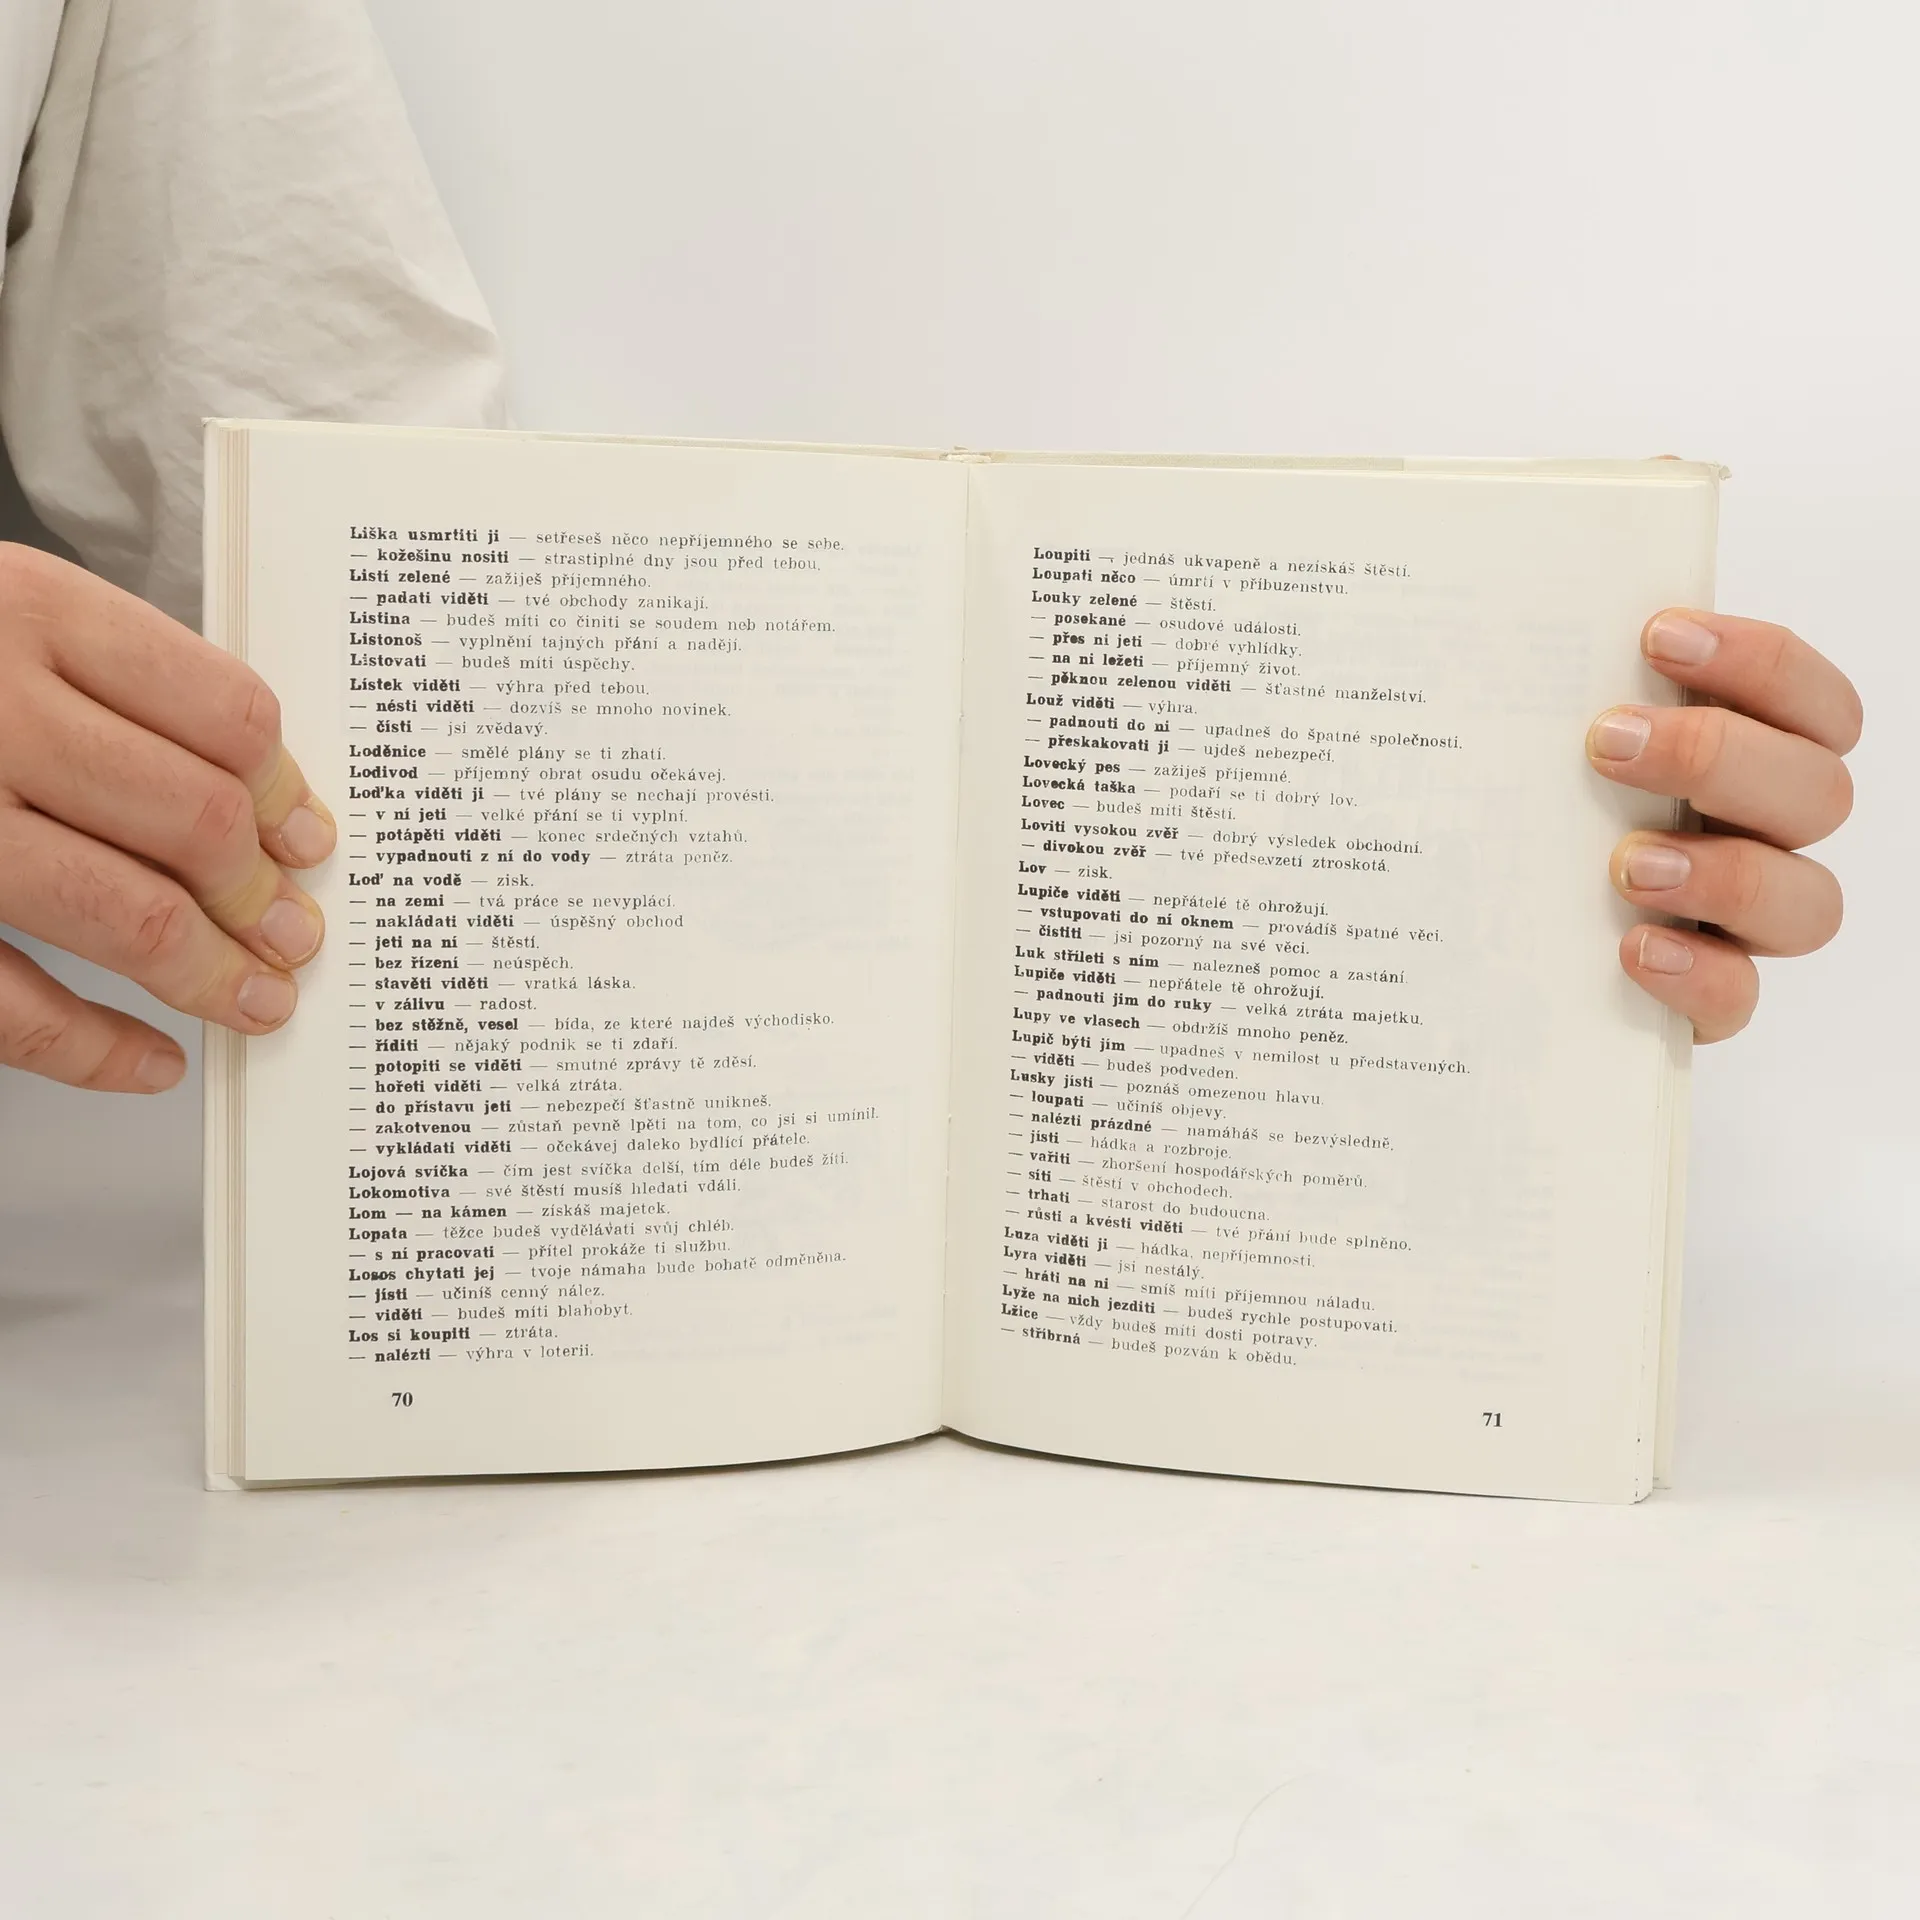 Liška usmrtiti ji — setřeseš něco nepříjemného se sebe.
— kožešinu nositi — strastiplné dny jsou před tebou.
Listí zelené — zažiješ příjemného.
— padati viděti — tvé obchody zanikají.
Listina — budeš míti co činiti se soudem neb notářem.
Listonoš — vyplnění tajných přání a nadějí.
Listovati — budeš míti úspěchy.
Lístek viděti — výhra před tebou.
— nésti viděti — dozvíš se mnoho novinek.
— čísti — jsi zvědavý.
Loděnice — smělé plány se ti zhatí.
Lodivod — příjemný obrat osudu očekávej.
Loďka viděti ji — tvé plány se nechají provésti.
— v ní jeti — velké přání se ti vyplní.
— potápěti viděti — konec srdečných vztahů.
— vypadnouti z ní do vody — ztráta peněz.
Loď na vodě — zisk.
— na zemi — tvá práce se nevyplácí.
— nakládati viděti — úspěšný obchod
— jeti na ní — štěstí.
— bez řízení — neúspěch.
— stavěti viděti — vratká láska.
— v zálivu — radost.
— bez stěžně, vesel — bída, ze které najdeš východisko.
— říditi — nějaký podnik se ti zdaří.
— potopiti se viděti — smutné zprávy tě zděsí.
— hořeti viděti — velká ztráta.
— do přístavu jeti — nebezpečí šťastně unikneš.
— zakotvenou — zůstaň pevně lpěti na tom, co jsi si umínil.
— vykládati viděti — očekávej daleko bydlící přátele.
Lojová svíčka — čím jest svíčka delší, tím déle budeš žíti.
Lokomotiva — své štěstí musíš hledati vdáli.
Lom — na kámen — získáš majetek.
Lopata — těžce budeš vydělávati svůj chléb.
— s ní pracovati — přítel prokáže ti službu.
Losos chytati jej — tvoje námaha bude bohatě odměněna.
— jísti — učiníš cenný nález.
— viděti — budeš míti blahobyt.
Los si koupiti — ztráta.
— nalézti — výhra v loterii.
70
Loupiti — jednáš ukvapeně a nezískáš štěstí.
Loupati něco — úmrtí v příbuzenstvu.
Louky zelené — štěstí.
— posekané — osudové události.
— přes ni jeti — dobré vyhlídky.
— na ni ležeti — příjemný život.
— pěknou zelenou viděti — šťastné manželství.
Louž viděti — výhra.
— padnouti do ni — upadneš do špatné společnosti.
— přeskakovati ji — ujdeš nebezpečí.
Lovecký pes — zažiješ příjemné.
Lovecká taška — podaří se ti dobrý lov.
Lovec — budeš míti štěstí.
Loviti vysokou zvěř — dobrý výsledek obchodní.
— divokou zvěř — tvé předsevzetí ztroskotá.
Lov — zisk.
Lupiče viděti — nepřátelé tě ohrožují.
— vstupovati do ní oknem — provádíš špatné věci.
— čístiti — jsi pozorný na své věci.
Luk stříleti s ním — nalezneš pomoc a zastání.
Lupiče viděti — nepřátele tě ohrožují.
— padnouti jim do ruky — velká ztráta majetku.
Lupy ve vlasech — obdržíš mnoho peněz.
Lupič býti jím — upadneš v nemilost u představených.
— viděti — budeš podveden.
Lusky jísti — poznáš omezenou hlavu.
— loupati — učiníš objevy.
— nalézti prázdné — namáháš se bezvýsledně.
— jísti — hádka a rozbroje.
— vařiti — zhoršení hospodářských poměrů.
— síti — štěstí v obchodech.
— trhati — starost do budoucna.
— růsti a kvésti viděti — tvé přání bude splněno.
Luza viděti ji — hádka, nepříjemnosti.
Lyra viděti — jsi nestálý.
— hráti na ni — smíš míti příjemnou náladu.
Lyže na nich jezditi — budeš rychle postupovati.
Lžíce — vždy budeš míti dosti potravy.
— stříbrná — budeš pozván k obědu.
71